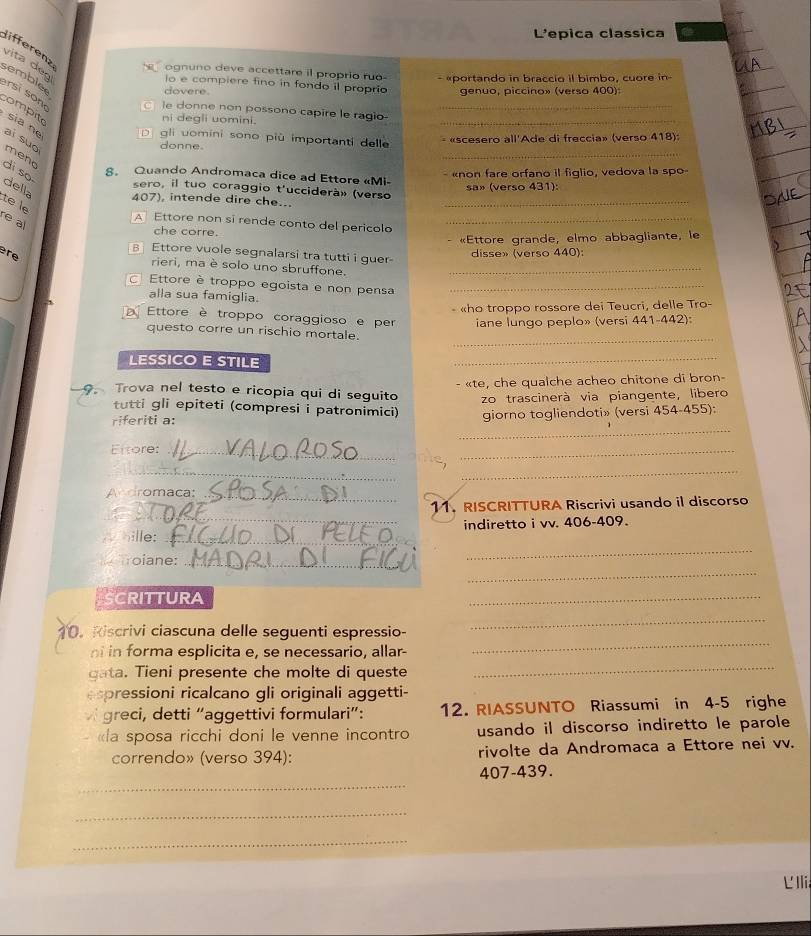 L'epica classica
differenze
vita degli
semblee
ersi sono
compito
sia nei
ai suoi
meno
di so-
della
te le
re al
ere
ognuno deve accettare il proprio ruo-
lo e compiere fino in fondo il proprio
dovere.
C le donne non possono capire le ragio-
ni degli uomini.
D gli uomini sono più importanti delle
donne.
8. Quando Andromaca dice ad Ettore «Mi-
sero, il tuo coraggio t'ucciderà» (verso
407), intende dire che...
A Ettore non si rende conto del pericolo
che corre.
B Ettore vuole segnalarsi tra tutti i guer-
rieri, ma è solo uno sbruffone.
C Ettore è troppo egoista e non pensa
alla sua famiglia.
D Ettore è troppo coraggioso e per
questo corre un rischio mortale.
LESSICO E STILE
9. Trova nel testo e ricopia qui di seguito
tutti gli epiteti (compresi i patronimici)
riferiti a:
Ettore: IL VALOROSO
Andromaca: SPOSA DI
ETTORE
Achille: FIGLIO DI PELEO
Troiane: MADRI DI FIGLI
SCRITTURA
10. Riscrivi ciascuna delle seguenti espressio-
ni in forma esplicita e, se necessario, allar-
gata. Tieni presente che molte di queste
espressioni ricalcano gli originali aggetti-
vi greci, detti "aggettivi formulari":
- «la sposa ricchi doni le venne incontro
correndo» (verso 394):
- «portando in braccio il bimbo, cuore in-
genuo, piccino» (verso 400):
- «scesero all'Ade di freccia» (verso 418):
- «non fare orfano il figlio, vedova la spo-
sa» (verso 431):
- «Ettore grande, elmo abbagliante, le
disse» (verso 440):
- «ho troppo rossore dei Teucri, delle Tro-
iane lungo peplo» (versi 441-442):
- «te, che qualche acheo chitone di bron-
zo trascinerà via piangente, libero
giorno togliendoti» (versi 454-455):
11. RISCRITTURA Riscrivi usando il discorso
indiretto i vv. 406-409.
12. RIASSUNTO Riassumi in 4-5 righe
usando il discorso indiretto le parole
rivolte da Andromaca a Ettore nei vv.
407-439.
L'Ili